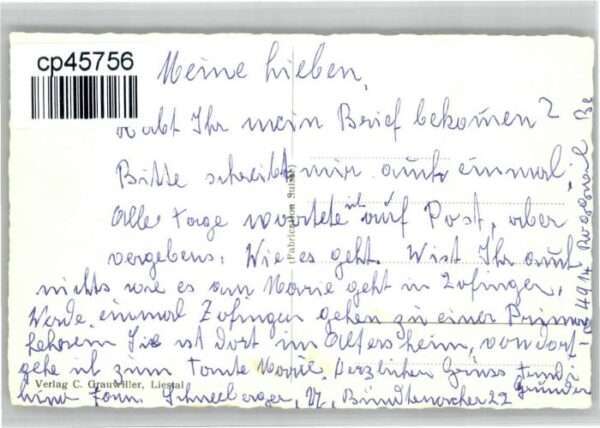 cp45756
Meine Lieben,
Habt Ihr mein Brief bekomen?
Bitte schreibt mir auch einmal
Alle Tage wartete ich auf Post, aber
vergebens. Wie es geht. Wist Ihr auch
nichts wie es am Marie geht in Zofingen.
Werde einmal Zofingen gehen zu einer
Sie ist dort im Altersheim, von dort
gehe ich zum Tante Marie. Herzlichen Grüss
Fam. Schneeberger, 22
4914 Roggwil Be
(Fabrication Suisse)
Verlag C. Grauwiller, Liestal